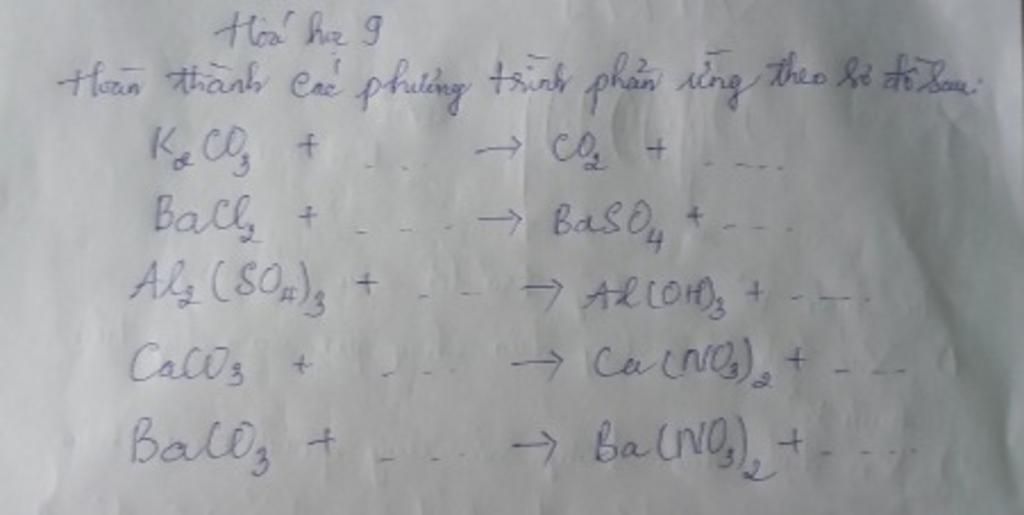 Hoá học 9
Hoàn thành các phương trình phản ứng theo sơ đồ sau:
K₂CO₃ + ... → CO₂ + ....
BaCl₂ + .... → BaSO₄ + ....
Al₂(SO₄)₃ + ... → Al(OH)₃ + ....
CaCO₃ + .... → Ca(NO₃)₂ + ...
BaCO₃ + .... → Ba(NO₃)₂ + .....